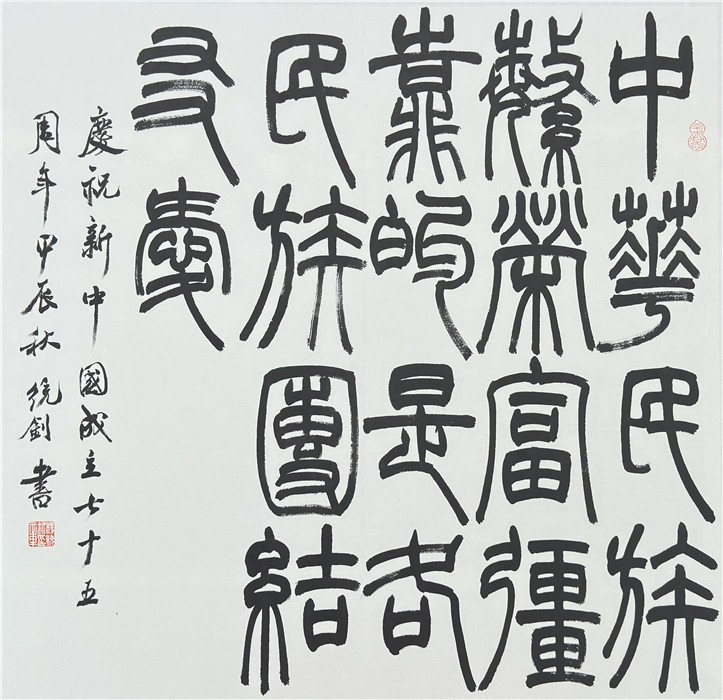 中華民族
繁榮富彊
靠的是各
民族團結
友愛
慶祝新中國成立七十五
周年甲辰秋 釗書